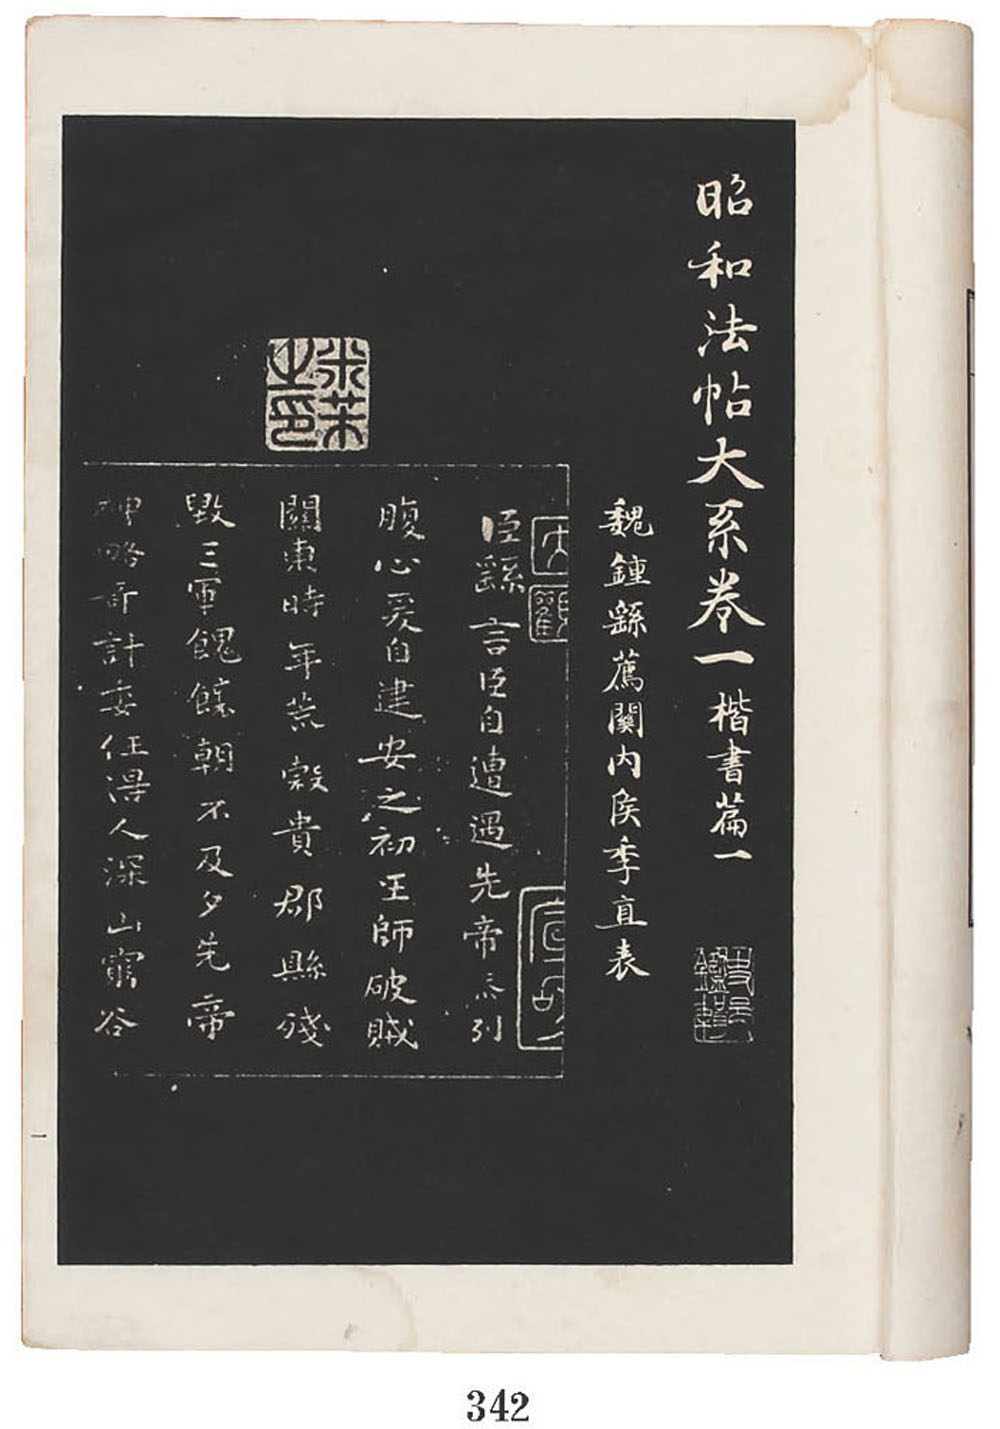 昭和法帖大系卷一楷書篇一
魏鍾繇薦關内侯季直表
臣繇言臣自遭遇先帝忝列
腹心爰自建安之初王師破賊
關東時年荒穀貴郡縣殘
毀三軍餽饟朝不及夕先帝
神略奇計委任得人深山窮谷
米芾之印
一
342